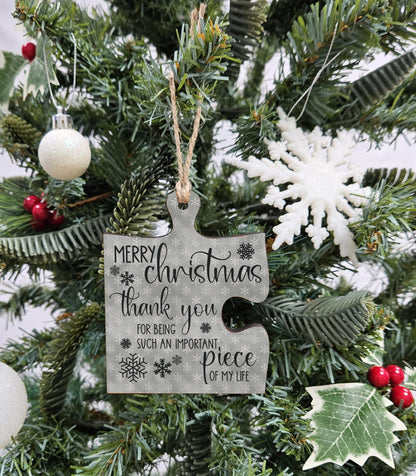 MERRY christmas
thank you
FOR BEING
SUCH AN IMPORTANT
piece
OF MY LIFE